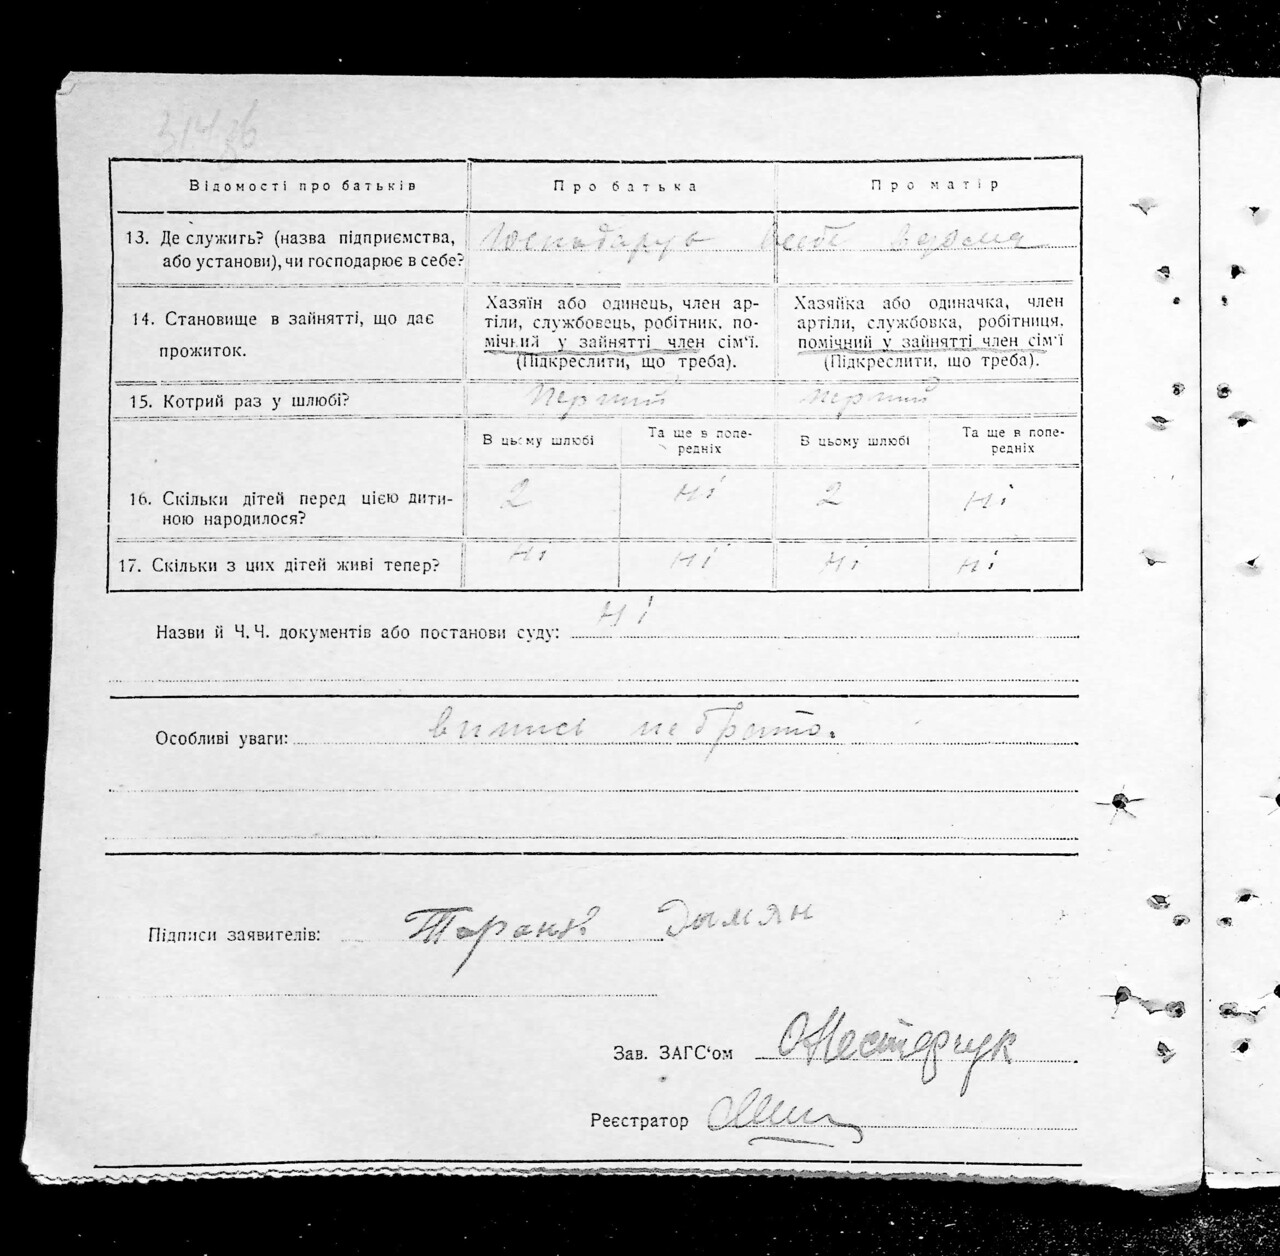 31436
Відомості про батьків Про батька Про матір
13. Де служить? (назва підприємства, або установи), чи господарює в себе? Господарує в себе вдома
14. Становище в зайнятті, що дає прожиток.
Хазяїн або одинець, член ар-
тіли, службовець, робітник, по-
мічний у зайнятті член сім'ї.
(Підкреслити, що треба).
Хазяйка або одиначка, член
артіли, службовка, робітниця,
помічний у зайнятті член сім'ї
(Підкреслити, що треба).
15. Котрий раз у шлюбі? перший перший
В цьому шлюбі Та ще в попе-
редніх В цьому шлюбі Та ще в попе-
редніх
16. Скільки дітей перед цією дити-
ною народилося? 2 ні 2 ні
17. Скільки з цих дітей живі тепер? ні ні ні ні
Назви й Ч. Ч. документів або постанови суду: ні
Особливі уваги: випись не брато.
Підписи заявителів: Дымян
Зав. ЗАГС'ом Нестерчук
Реєстратор